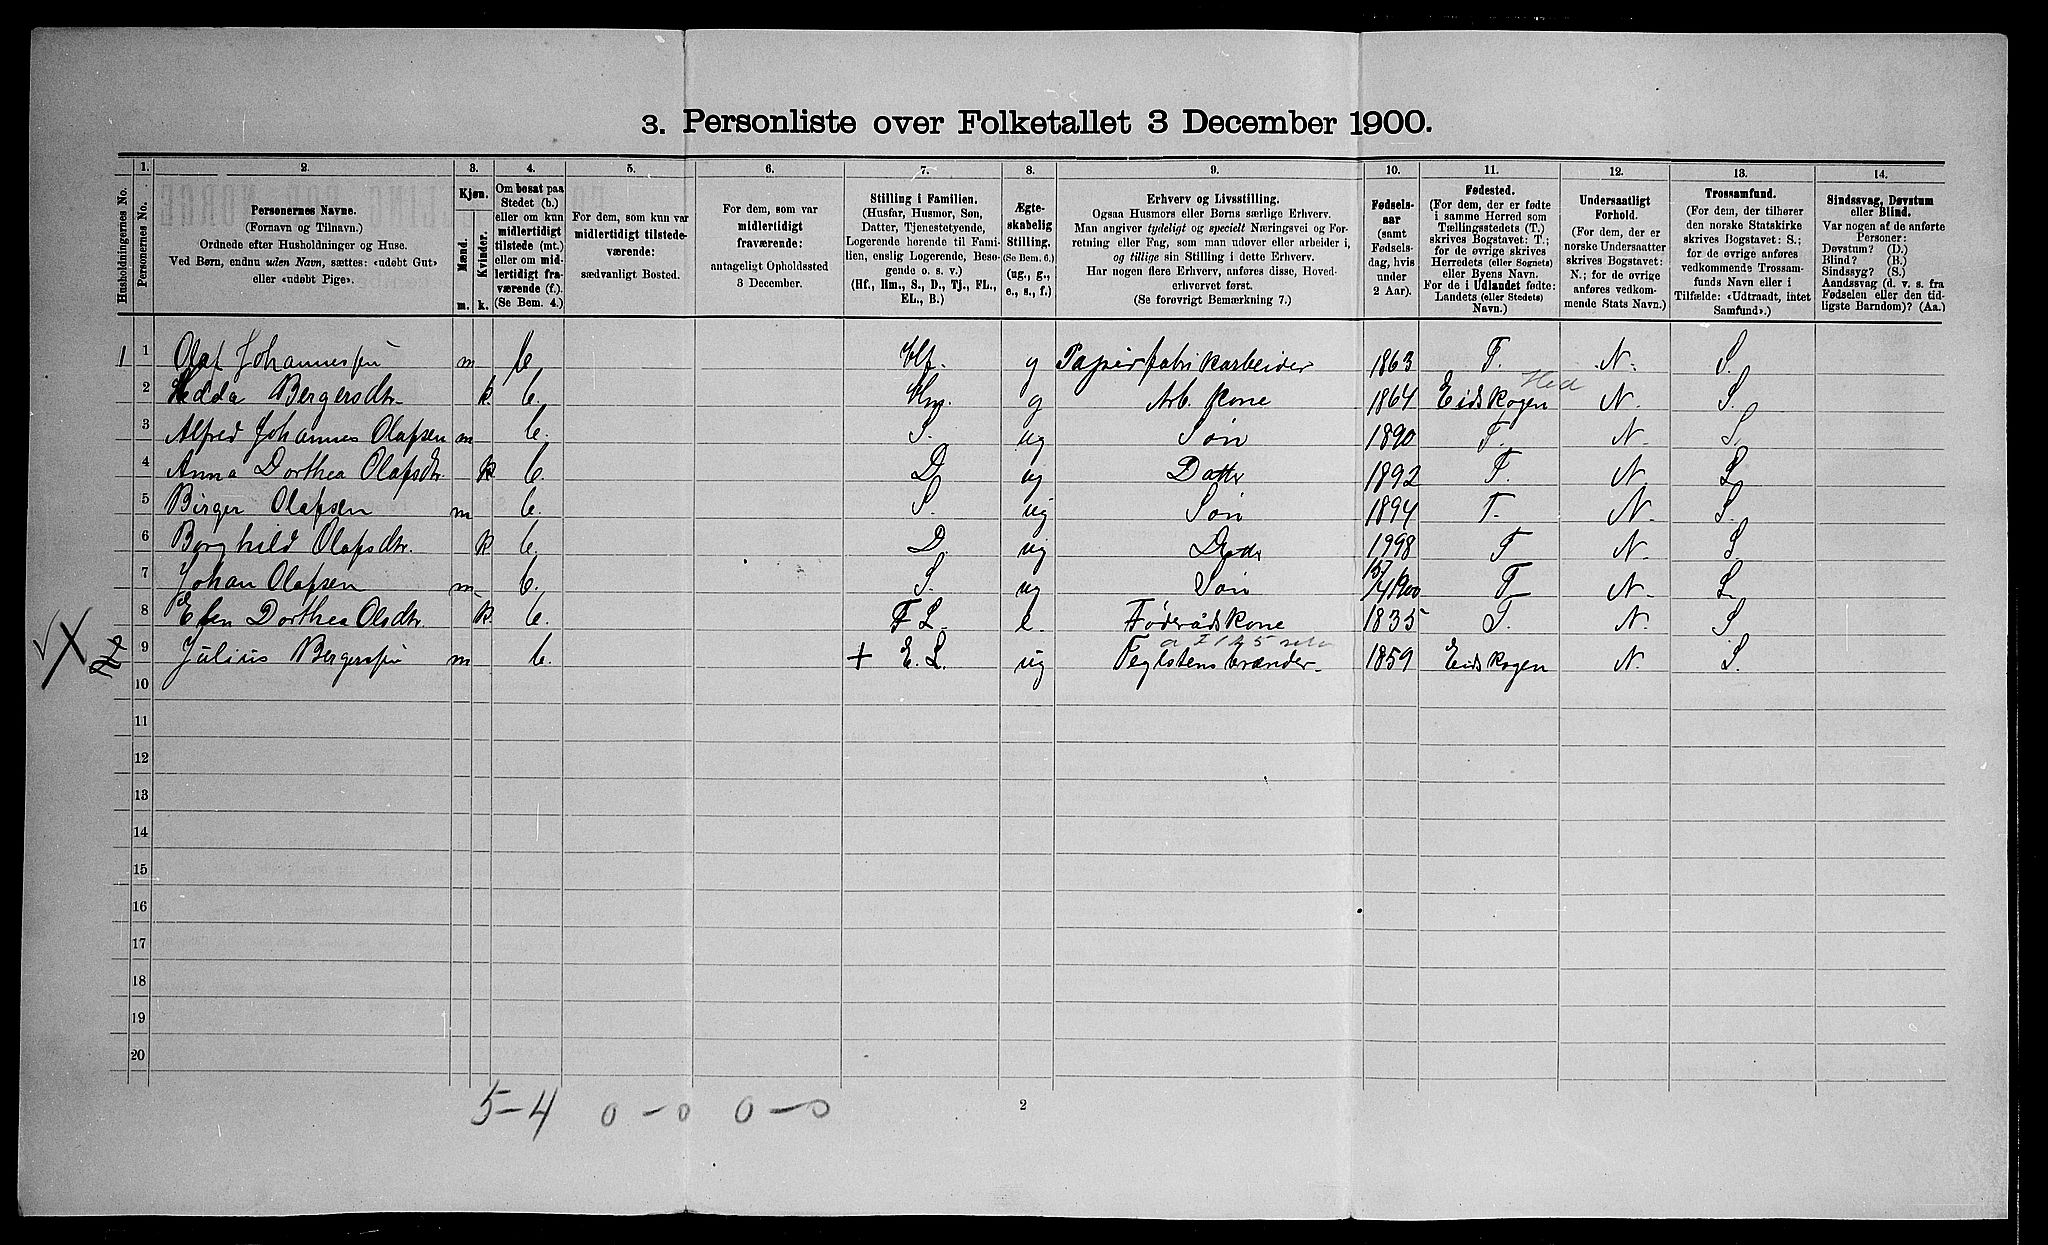 3. Personliste over Folketallet 3 December 1900.
Husholdningernes No.
1. Personernes No.
2. Personernes Navne. (Fornavn og Tilnavn.) Ordnede efter Husholdninger og Huse. Ved Børn, endnu uden Navn, sættes: «udøbt Gut» eller «udøbt Pige».
3. Kjøn. Mænd. m. Kvinder. k.
4. Om bosat paa Stedet (b.) eller om kun midlertidigt tilstede (mt.) eller om midlertidigt fraværende (f.) (Se Bem. 4.)
5. For dem, som kun var midlertidigt tilstedeværende: sædvanligt Bosted.
6. For dem, som var midlertidigt fraværende: antageligt Opholdssted 3 December.
7. Stilling i Familien. (Husfar, Husmor, Søn, Datter, Tjenestetyende, Logerende hørende til Familien, enslig Logerende, Besøgende o. s. v.) (Hf., Hm., S., D., Tj., FL., EL., B.)
8. Ægteskabelig Stilling. (Se Bem. 6.) (ug., g., e., s., f.)
9. Erhverv og Livsstilling. Ogsaa Husmors eller Børns særlige Erhverv. Man angiver tydeligt og specielt Næringsvei og Forretning eller Fag, som man udøver eller arbeider i, og tillige sin Stilling i dette Erhverv. Har nogen flere Erhverv, anføres disse, Hovederhvervet først. (Se forøvrigt Bemærkning 7.)
10. Fødselsaar (samt Fødselsdag, hvis under 2 Aar).
11. Fødested. (For dem, der er fødte i samme Herred som Tællingsstedets (T.) skrives Bogstavet: T.; for de øvrige skrives Herredets (eller Sognets) eller Byens Navn. For de i Udlandet fødte: Landets (eller Stedets) Navn.)
12. Undersaatligt Forhold. (For dem, der er norske Undersaatter skrives Bogstavet: N.; for de øvrige anføres vedkommende Stats Navn.)
13. Trossamfund. (For dem, der tilhører den norske Statskirke skrives Bogstavet: S.; for de øvrige anføres vedkommende Trossamfunds Navn eller i Tilfælde: «Udtraadt, intet Samfund».)
14. Sindssvag, Døvstum eller Blind. Var nogen af de anførte Personer: Døvstum? (D.) Blind? (B.) Sindssyg? (S.) Aandssvag (d. v. s. fra Fødselen eller den tidligste Barndom)? (Aa.)
1 1 Olaf Johannesen m b. Hf. g Papirfabrikarbeider 1863 T. N. S.
2 Hedda Bergersdtr. k. b. Hm. g Arb. kone 1864 Eidskogen Hed N. S.
3 Alfred Johannes Olafsen m b. S. ug Søn 1890 T. N. S.
4 Anna Dorthea Olafsdtr k b. D. ug Datter 1892 T. N. S.
5 Birger Olafsen m b. S. ug Søn 1894 T. N. S.
6 Borghild Olafsdtr. k b. D. ug Datr 1998 T N. S.
7 Johan Olafsen m b. S. ug Søn 15/4 1900 T N. S.
8 Elen Dorthea Olsdtr. k. b. F L. e. Føderådskone 1835 T. N. S
X 9 Julius Bergersen m b. + E. L. ug Teglstensbrænder 1859 Eidskogen N. S.
10
11
12
13
14
15
16
17
18
19
20
5-4 0-0 0-0
2